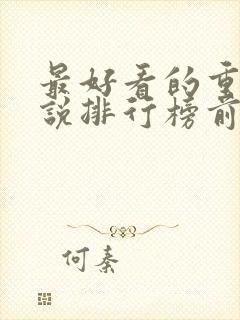 最好看的重
說排行榜前
何秦